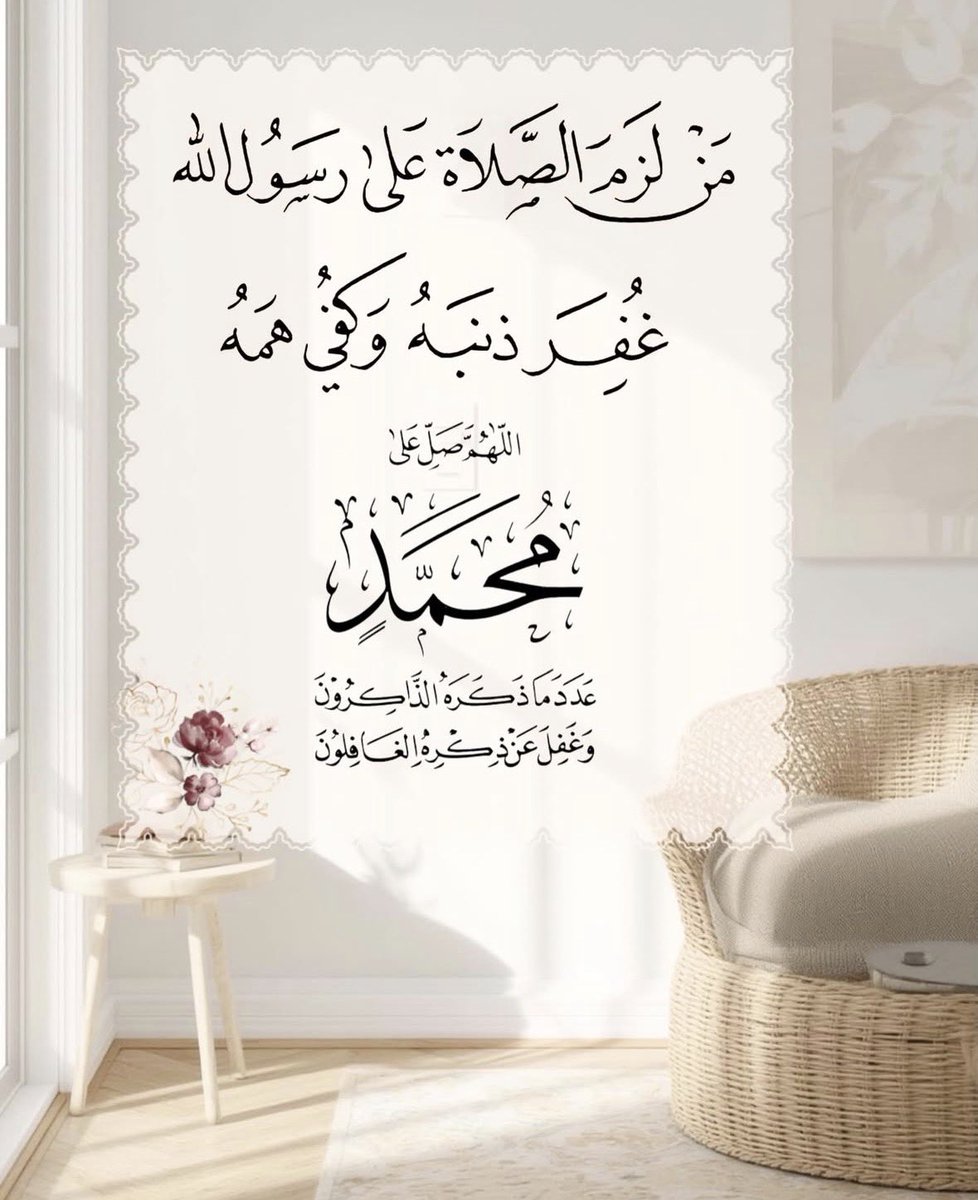 مَنْ لَزِمَ الصَّلَاةَ عَلَىٰ رَسُولِ الله
غُفِرَ ذَنبَهُ وَكُفِيَ هَمَهُ
اللَّهُمَّ صَلِّ عَلَىٰ
مُحَمَّدٍ
عَدَدَ مَا ذَكَرَهُ الذَّاكِرُوْنَ
وَغَفِلَ عَنْ ذِكْرِهِ الغَافِلُوْنَ